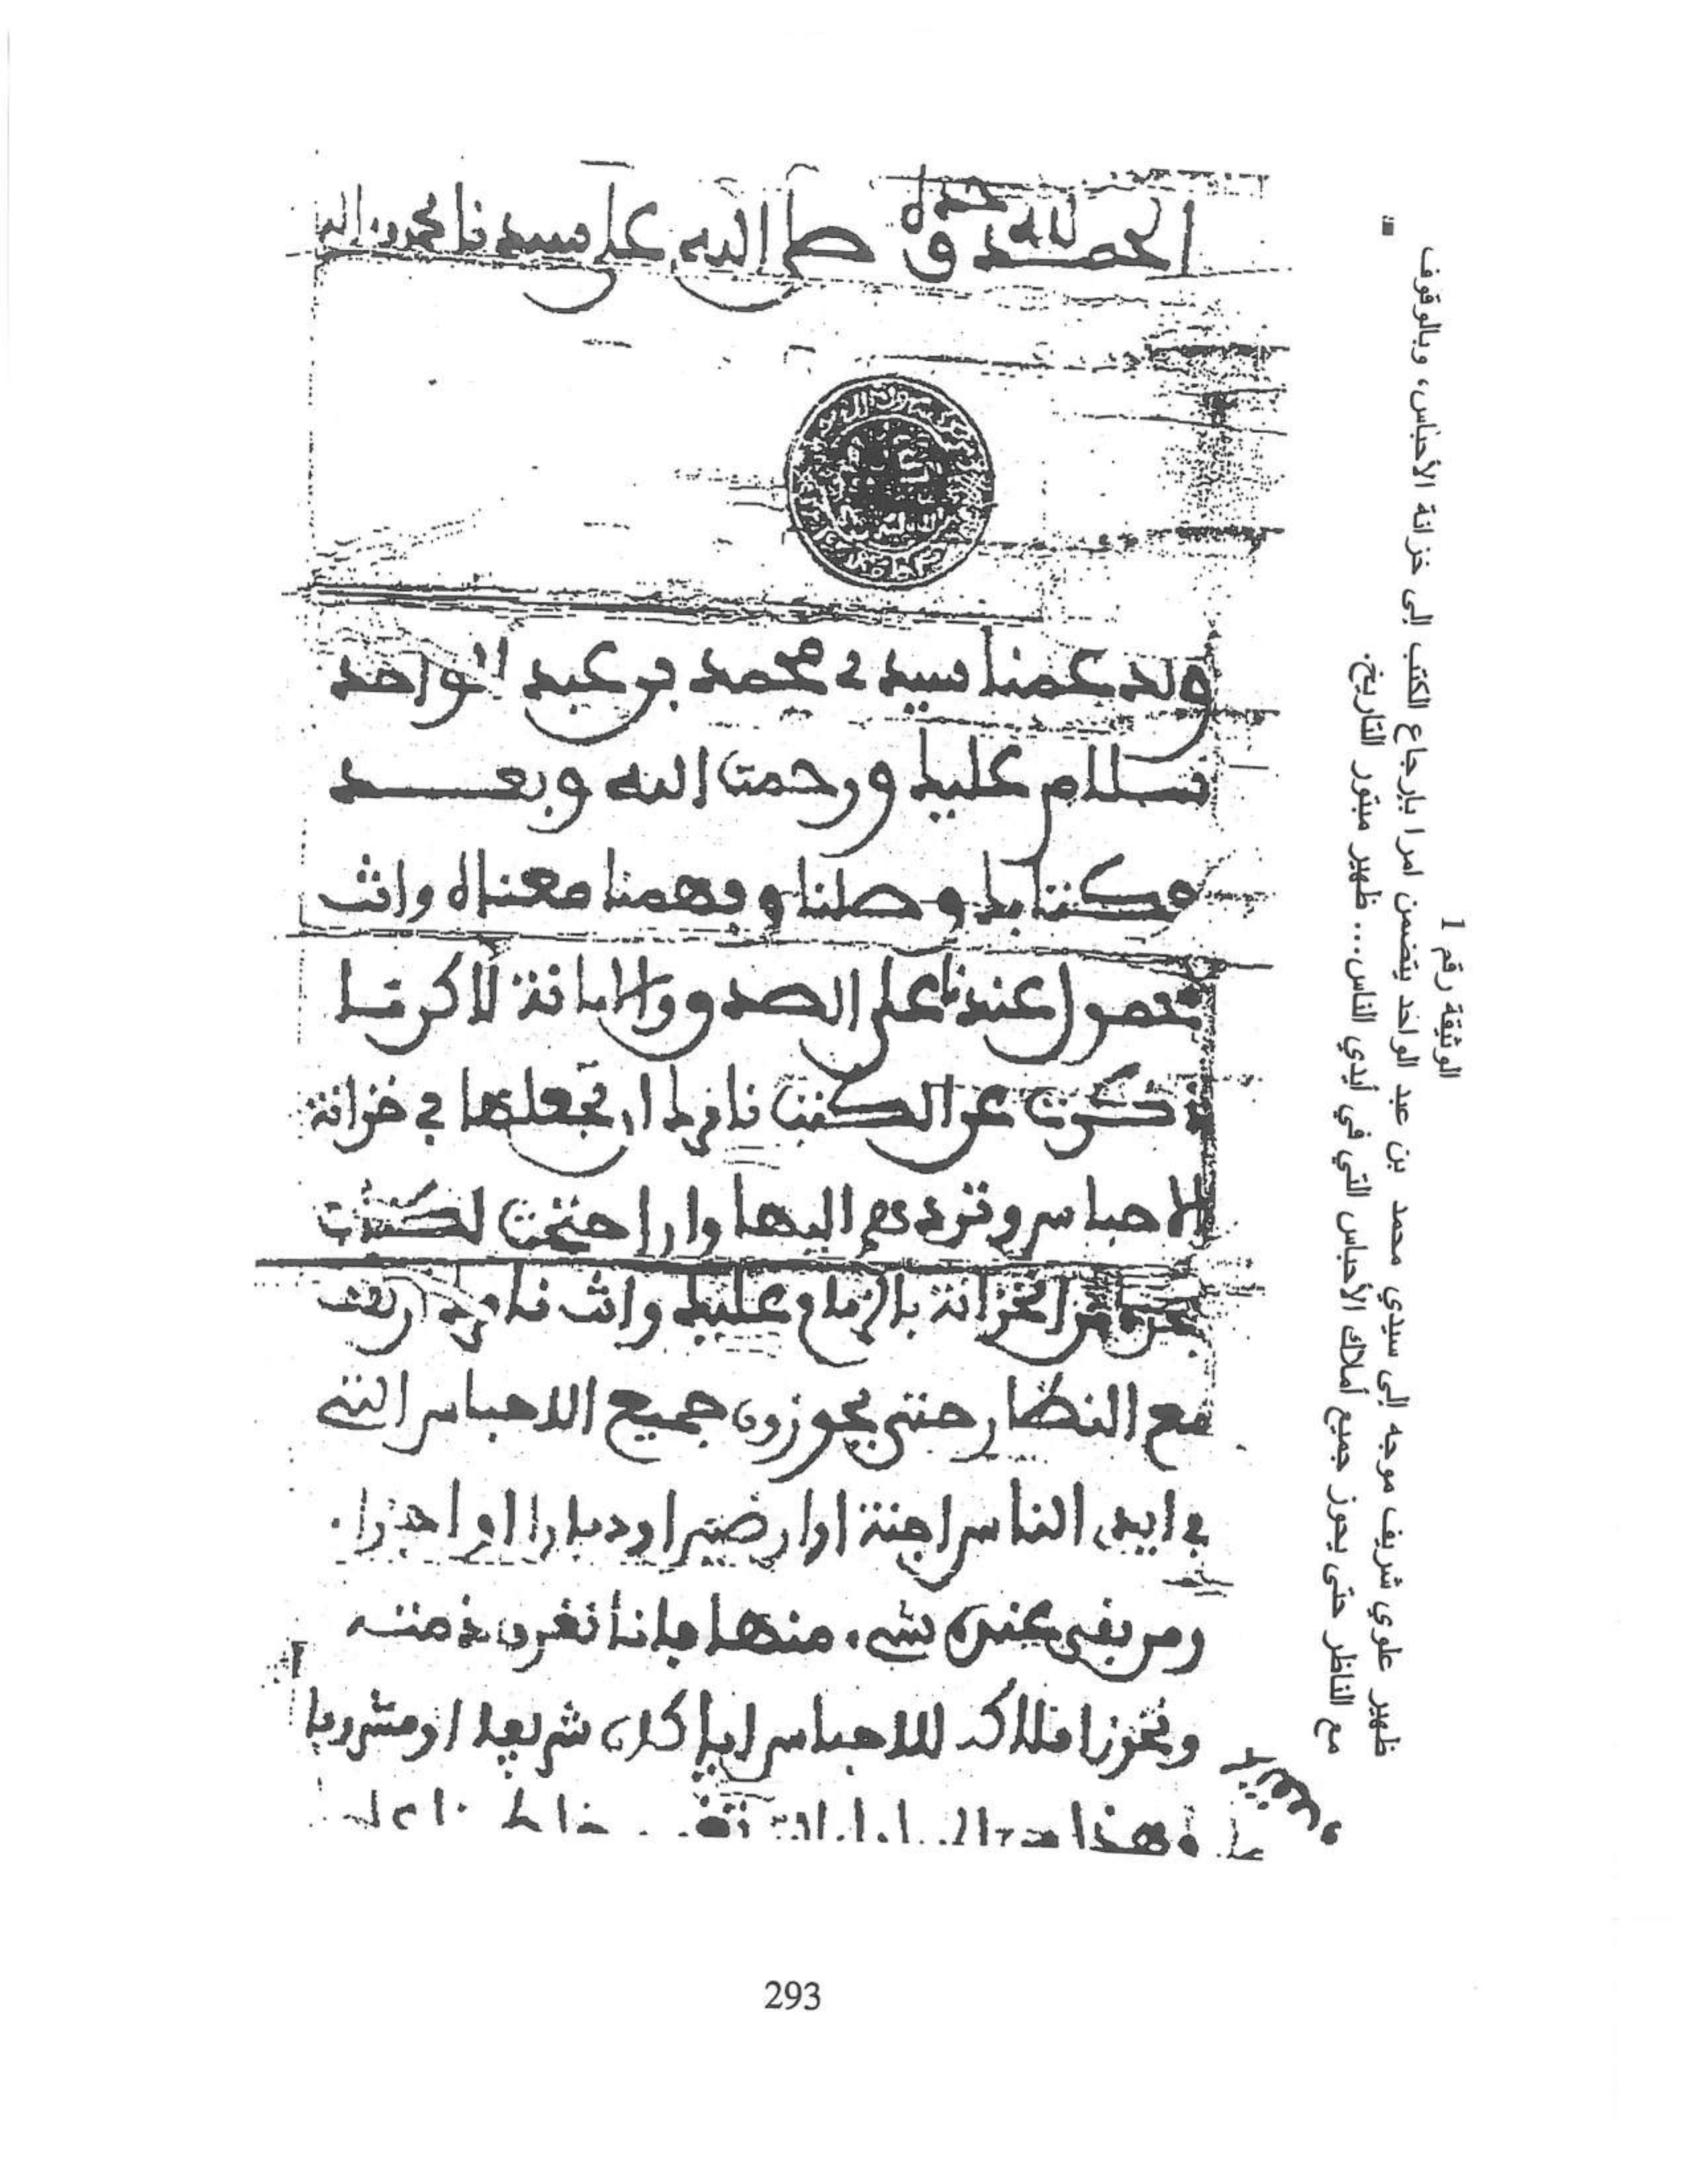 الوثيقة رقم 1
ظهير علوي شريف موجه إلى سيدي محمد بن عبد الواحد يتضمن امرا بإرجاع الكتب إلى خزانة الأحباس، وبالوقوف
مع الناظر حتى يحوز جميع أملاك الأحباس التي في أيدي الناس... ظهير مبتور التاريخ.
الحمد لله وحده وصلى الله على سيدنا محمد وآله
ولد عمنا سيدي محمد بن عبد الواحد
سلام عليك ورحمت الله وبعد
فكتابك وصلنا وفهمنا معناه وانت
محمول عندنا على الصدق والامانة لاكن ما
ذكرت عن الكتب نامرك ان تجعلها في خزانة
الاحباس وترددهم اليها وان احتجت لكتاب
من الخزانة عليك وانت نامرك ان تقف
مع النظار حتى يحوزون جميع الاحباس التي
في ايدي الناس اجنة او ارضين او ديارا او اجزا
ومن بقى عنده شيء منها فانا نغرق ذمته
ونحوز املاكه للاحباس ايا كان شريفا او مشروفا
وهذا
293